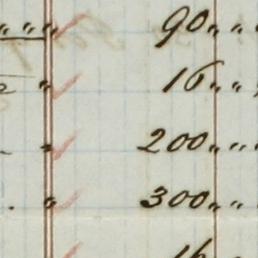 „ „ „ 90 „ „
„ 16 „ „
„ 200 „ „
„ 300 „ „
16